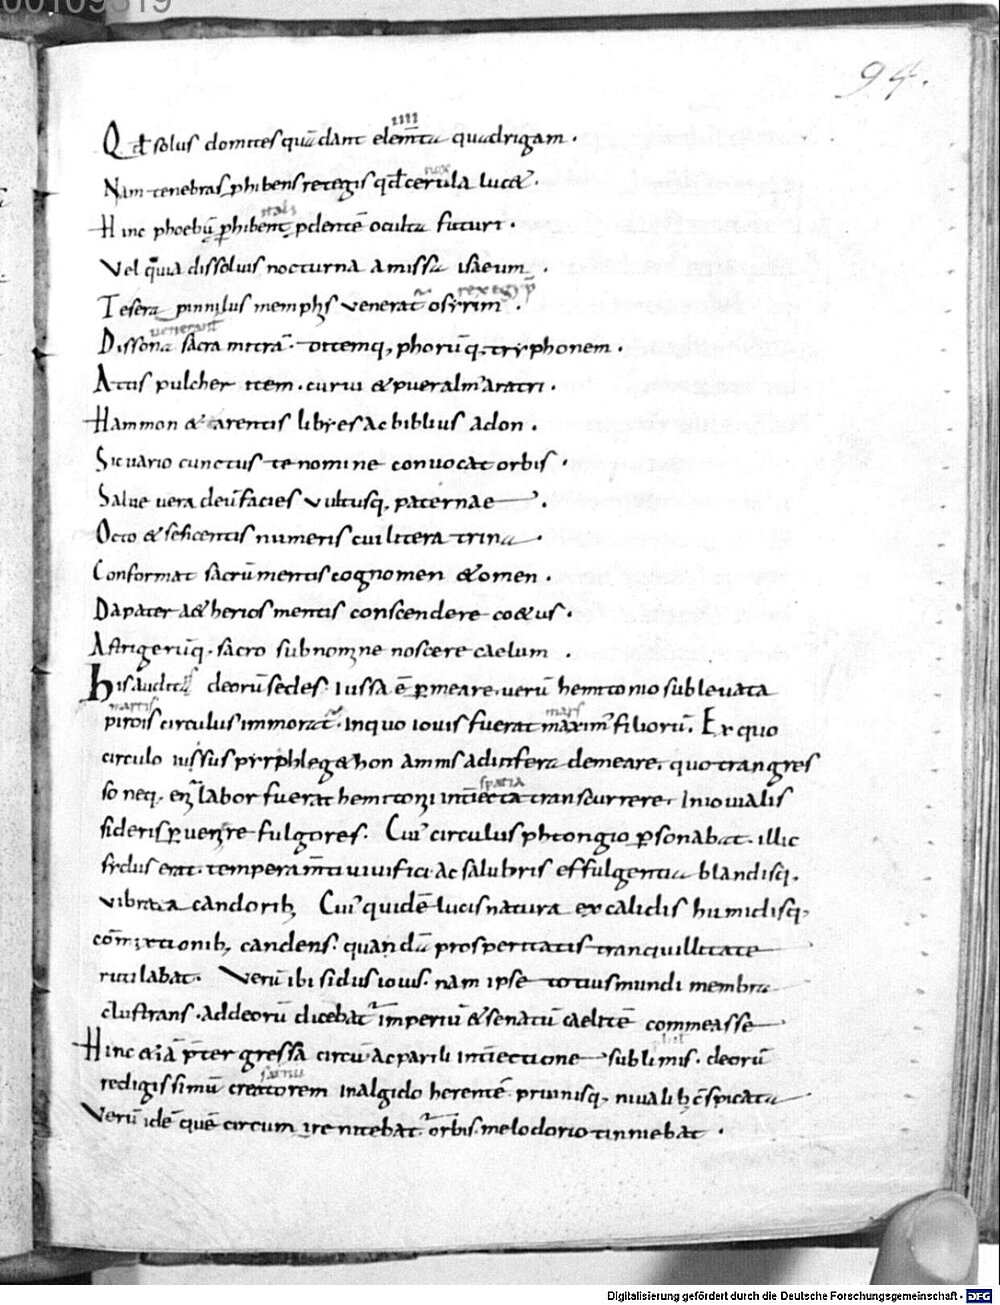 00109319
94.
Qđ solus domites quā dant elem̄ta quadrigam.
IIII
Nam tenebras phibens retegis qđ cerula lucæ.
nox
Hinc phoebū phibent pdentē oculta futuri.
Vel quia dissoluis nocturna amissa isaeum.
Te sera pinnilus memphis venerat osyrim.
rex egyp
Dissona sacra mitrā. ditemq, phorūq. tryphonem.
venerant
Attis pulcher item. curui & puer alm' aratri.
Hammon & arentis libies ac biblius adon.
Sic uario cunctus te nomine conuocat orbis.
Salue uera deū facies vultusq, paternae.
Octo & sescentis numeris cui litera trina.
Conformat sacrū mentis cognomen & omen.
Da pater aetherios mentis conscendere coetus.
Astrigerūq. sacro sub nomine noscere caelum.
His auditis deorū sedes iussa ē pmeare. uerū hemitonio subleuata
martis
pirois circulus immorat. In quo iouis fuerat maxim' filiorū. Ex quo
mars
circulo iussus pyrphlegethon amnis ad infera demeare. quo trangres
so neq. eni labor fuerat hemitonii intiecta transcurrere. In iouialis
spatia
sideris puenire fulgores. Cui' circulus phtongio psonabat. illic
sydus erat temperam̄ti uiuifici ac salubris effulgentia blandisq.
vibrata candorib; Cui' quidē lucis natura ex calidis humidisq,
cōmixtionib; candens. quandā prosperitatis tranquillitate
rutilabat. Verū ibi sidus iouis. nam ipse totius mundi membra
clustrans. ad deorū dicebat imperiū & senatū caelitē commeasse
Hinc & iā pter gressa circū ac parili intiectione sublimis. deorū
redigissimū creatorem in algido herentē pruinisq, niualib; cspicata
Verū idē quē circum ire nitebat orbis melo dorio tinniebat.
Digitalisierung gefördert durch die Deutsche Forschungsgemeinschaft - DFG